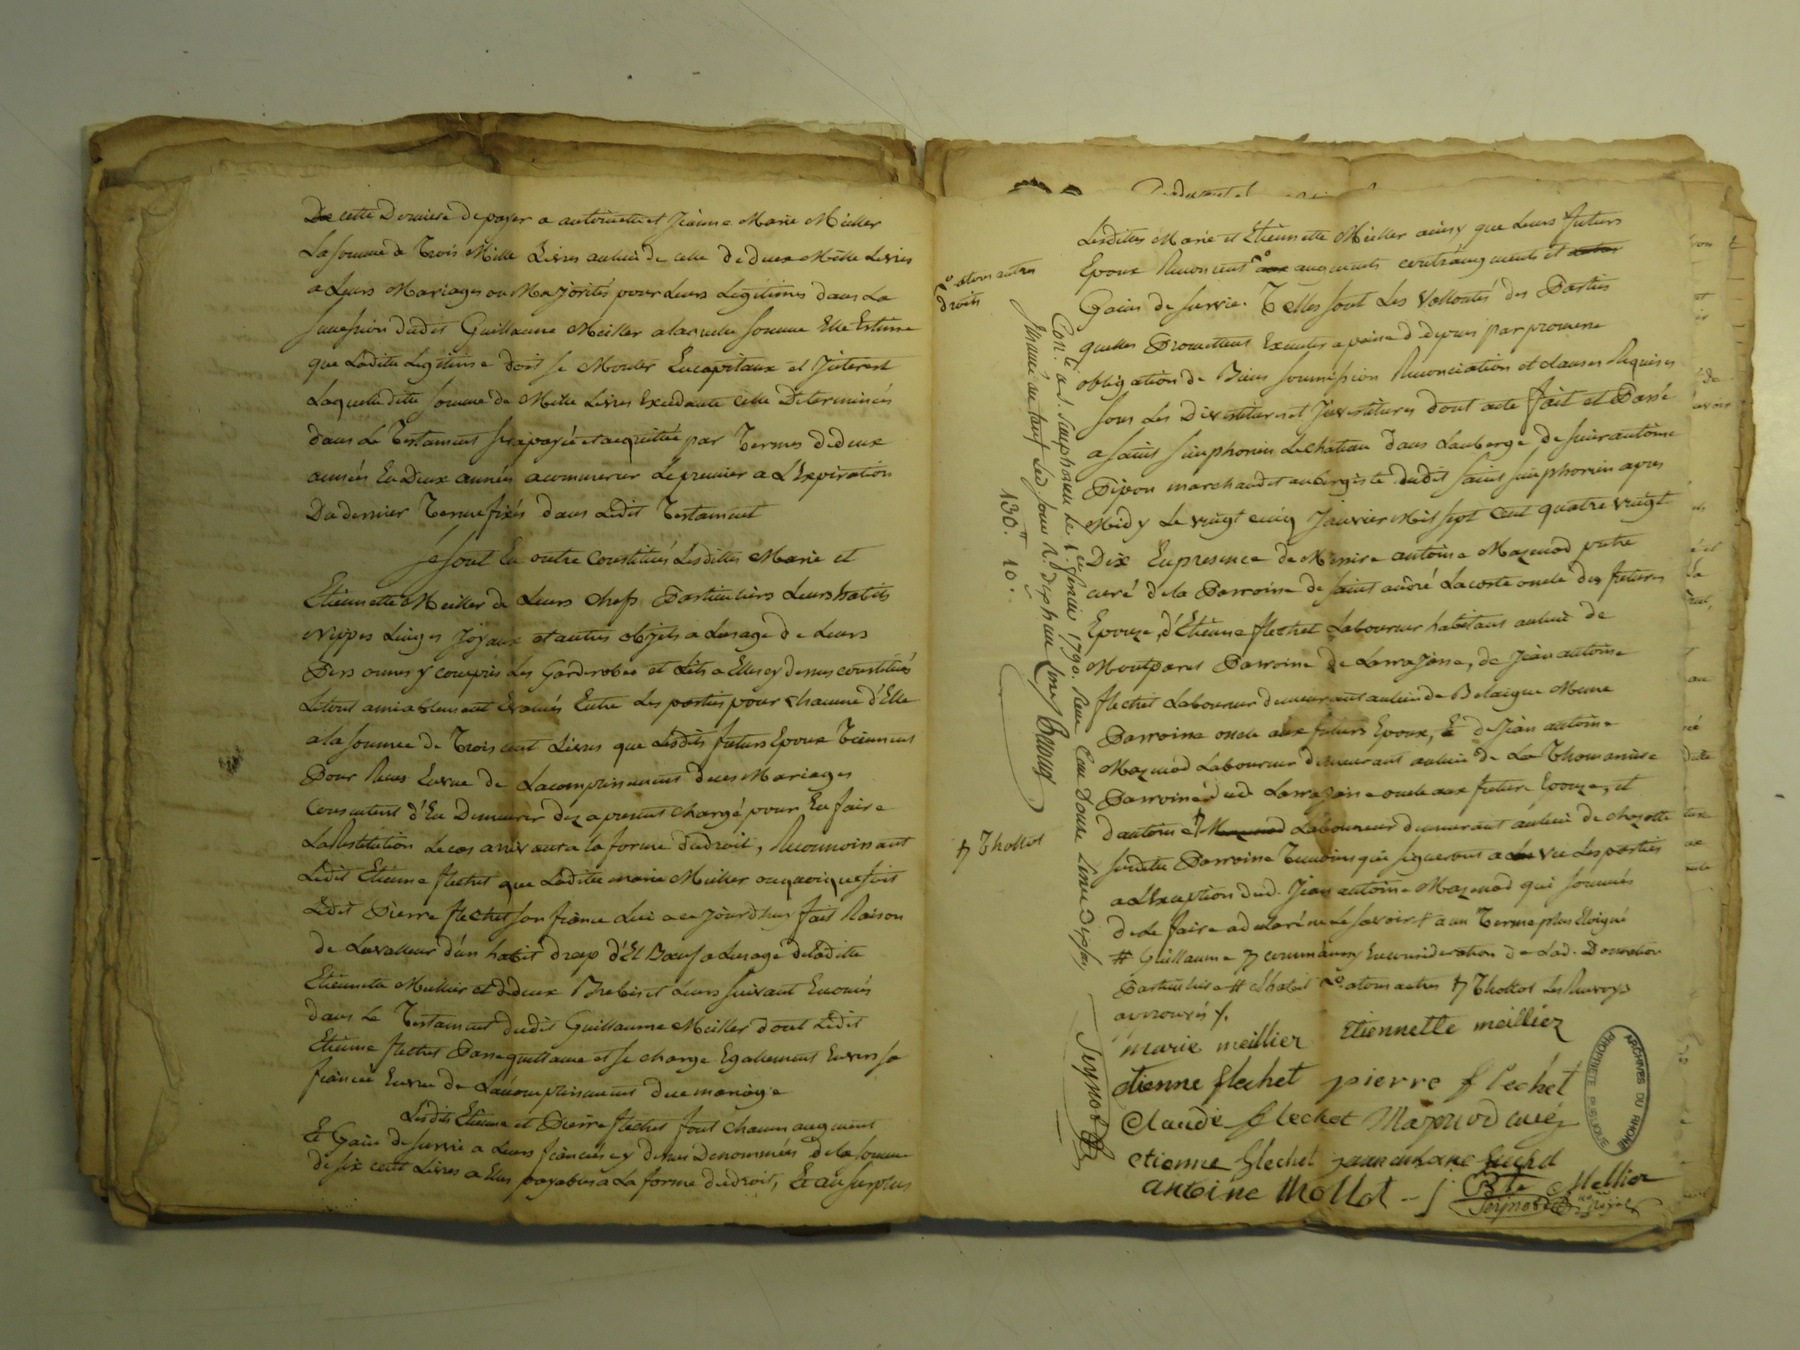 De cette Derniere de payer a antoinette et Jeanne Marie Meiller
La somme de Trois Mille Livres aulieu de celle de deux Mille Livres
a Leurs Mariages ou Majorités pour Leurs Legitimes dans La
succession dudit Guillaume Meiller a laquelle somme Elle Estime
que Ladite Legitime doit se Monter En capitaux et Interest
Laquelle ditte somme de Mille Livres Excedante celle Determinée
dans Le Testament sera payée et acquittée par Termes de deux
années En Deux années a commencer Le premier a L'Expiration
Du dernier Terme fixés dans Ledit Testament
Se sont En outre Constitués Lesdittes Marie et
Etiennette Meiller de Leurs chefs Particuliers Leurs habits
Nippes Linges Joyaux et autres objets a Lusage de Leurs
Personnes y compris Les Garderobes et Lits a Elles cy dessus constitués
Letout amiablement Evalués Entre Les parties pour chacune d'Elle
a la somme de Trois cent Livres que Lesdits futurs Epoux Tiennent
Pour Reçus En vue de Lacomplissement de ces Mariages
Consentent d'En Demeurer dez a present chargé pour En faire
La Restitution Le cas arrivant a la forme dudroit, Reconnoissant
Ledit Etienne flechet que Laditte marie Meiller ou quoique soit
Ledit Pierre flechet son fiancé Lui a ce jourdhuy fait Raison
de La valleur d'un habit drap d'El Bœuf a Lusage de Laditte
Etiennette Meillier et de deux Brebis et Leurs suivant Enoncés
dans Le Testament dudit Guillaume Meiller dont Ledit
Etienne flechet Passe quittance et se charge Egallement Envers sa
fiancée En vue de Lacomplissement de ce mariage
Lesdits Etienne et Pierre flechet font chacun augment
Et Gain de survie a Leurs fiancées cy dessus Denommées de la somme
de six cent Livres a Elles payables a La forme dudroit, Et au surplus
atous autres
droits
Lesdittes Marie et Etiennette Meiller ainsy que Leurs futurs
Epoux Renoncent aux augments contraugments et autres
Gains de survie. Telles sont Les Vollontés des Parties
quelles Promettent Executer a peine de depens par promesse
obligation de Biens soumission Renonciation et clauses Requises
sous Les Divestitures et Investitures dont acte fait et Passé
a saint simphorien Lechateau dans Lauberge de sieur antoine
Pipon marchand et aubergiste dudit saint simphorien apres
Midy Le vingt cinq Janvier Mil sept cent quatre vingt
Dix En presence de Messire antoine Mazenod pretre
curé de la Parroisse de saint andré Lacoste oncle des futures
Epouze, d'Etienne flechet Laboureur habitant au lieu de
Montpares Parroisse de Larrajasse, de Jean antoine
flechet Laboureur demeurant au lieu de Belaigue Meme
Parroisse oncle aux futurs Epoux, & de Jean antoine
Mazenod Laboureur demeurant au lieu de La Thomaniere
Parroisse dud. Larrajasse oncle aux future Epouze, et
dantoine Mazenod Laboureur demeurant au lieu de chozotte
susditte Parroisse Temoins qui signeront avec Les parties
a L'Exception dud. Jean antoine Mazenod qui sommés
de Le faire a declaré ne Le savoir a un Terme plus Eloigné
# Guillaume communs En consideration de Lad. Donnation
Particuliere # atous autres Thollot Les Renvoys
approuvés
Thollot
Con.lé a S. simphorien le 1.er fevrier 1790. Reçu Cent Trente Livres Dix sols
130.tt 10.s
marie meillier Etiennette meillier
etienne flechet pierre flechet
Claude flechet Mazenod curé
etienne flechet jean antoine flechet
antoine thollot - J Bte Mellier
Seynod
ARCHIVES DU RHONE
PROPRIETE PUBLIQUE